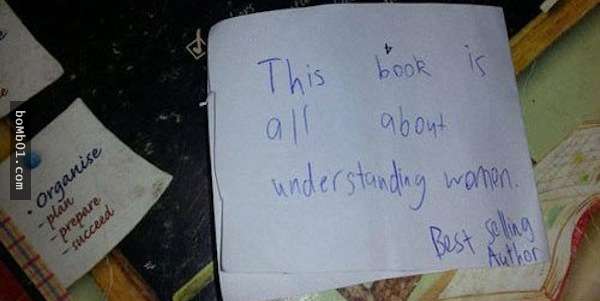 This book is
all about
understanding women.
Best selling
Author
• Organise
- plan
- prepare
- succeed
boMb01.com